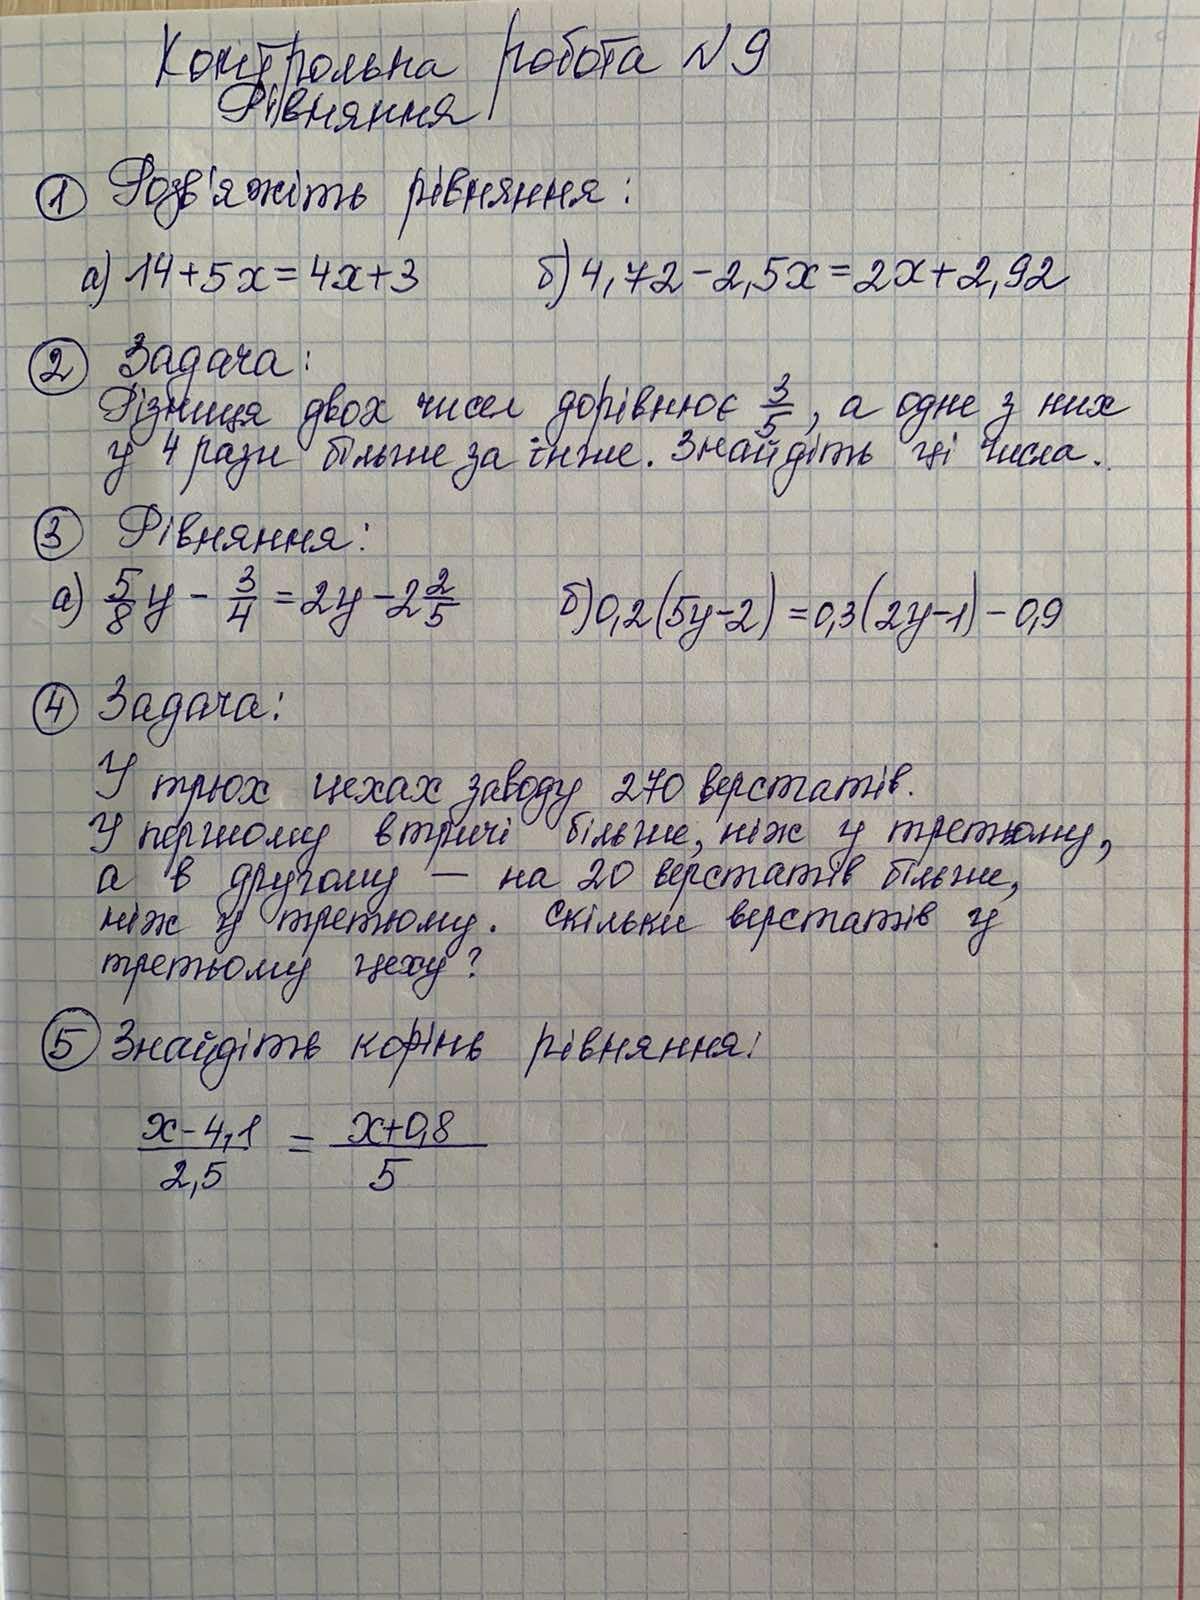 Контрольна робота №9
Рівняння
① Розв'яжіть рівняння:
а) 14+5x=4x+3 б) 4,72-2,5x=2x+2,92
② Задача:
Різниця двох чисел дорівнює 3/5, а одне з них
у 4 рази більше за інше. Знайдіть ці числа.
③ Рівняння:
а) 5/8 y - 3/4 = 2y - 2 2/5 б) 0,2(5y-2)=0,3(2y-1)-0,9
④ Задача:
У трьох цехах заводу 270 верстатів.
У першому втричі більше, ніж у третьому,
а в другому — на 20 верстатів більше,
ніж у третьому. Скільки верстатів у
третьому цеху?
⑤ Знайдіть корінь рівняння:
x-4,1 / 2,5 = x+0,8 / 5